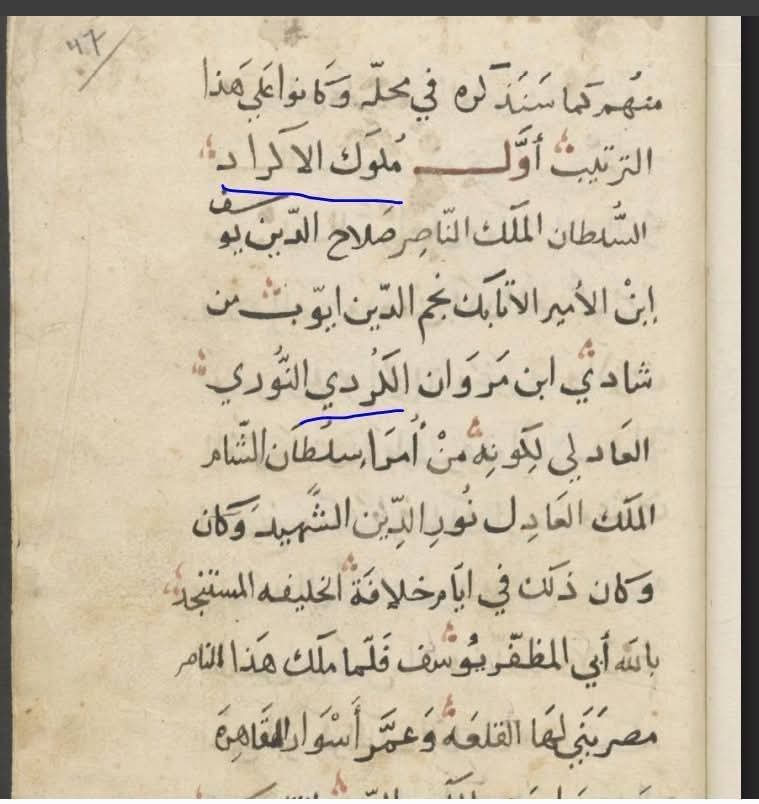 ٤٧
منهم كما سَنَذكره في محلّه وَكانوا عَلي هَذا
الترتيب أوَّل مُلوَك الاكراد
السُّلطان الملَك النّاصِر صَلاح الدّين يوسف
اِبنْ الأمير الاتابَك نجم الدّين ايوّب من
شادي ابن مَروَان الكَردي النُّوري
العَادلي لِكَونِهِ منْ أُمرَا سلطَان الشّام
الملَك العَادِل نُورِ الدِّين الشَّهيد وَكان
وَكان ذلك في ايّام خلافَة الخليفه المستنجد
بالله أبي المظفّر يوُسف فَلّما ملَك هَذا الناصر
مصر بَنَي لهَا القلعَه وَعمَّر أَسْوَار القَاهِرَة